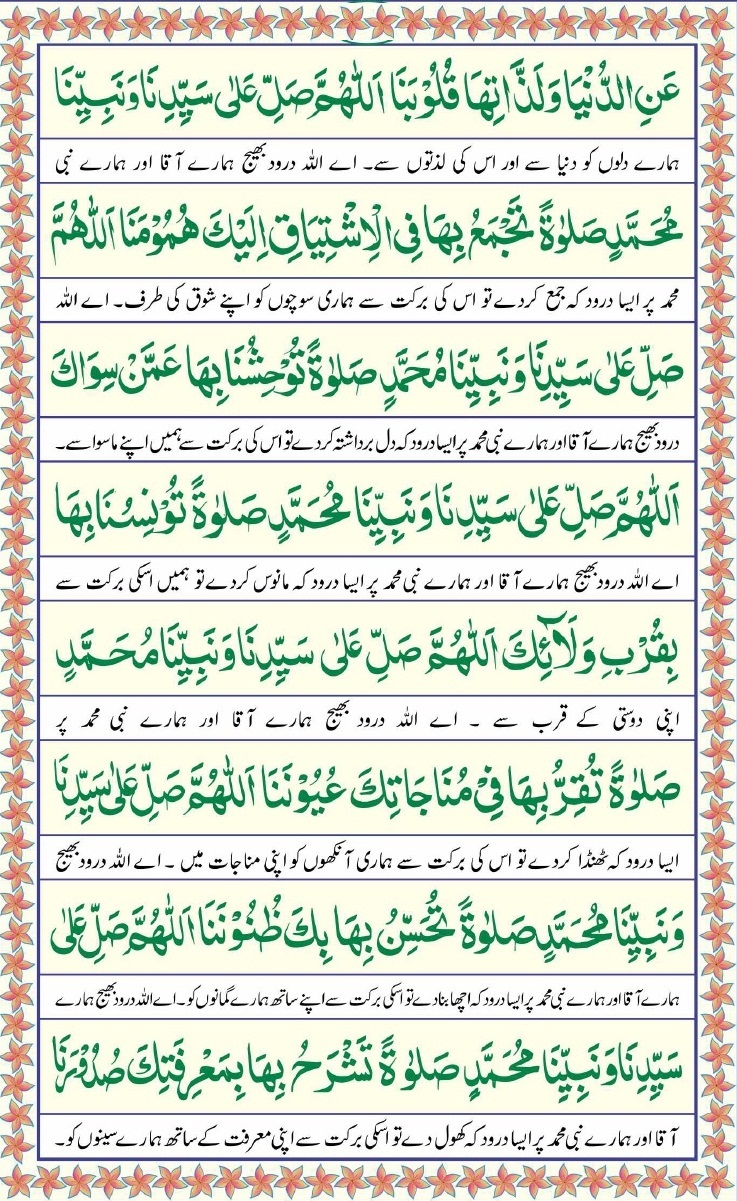 عَنِ الدُّنْيَا وَلَذَّاتِهَا قُلُوْبَنَا اَللّٰهُمَّ صَلِّ عَلٰى سَيِّدِنَا وَنَبِيِّنَا
ہمارے دلوں کو دنیا سے اور اس کی لذتوں سے۔ اے اللہ درود بھیج ہمارے آقا اور ہمارے نبی
مُحَمَّدٍ صَلٰوةً تَجْمَعُ بِهَا فِى الْاِشْتِيَاقِ اِلَيْكَ هُمُوْمَنَا اَللّٰهُمَّ
محمد پر ایسا درود کہ جمع کردے تو اس کی برکت سے ہماری سوچوں کو اپنے شوق کی طرف۔ اے اللہ
صَلِّ عَلٰى سَيِّدِنَا وَنَبِيِّنَا مُحَمَّدٍ صَلٰوةً تُوْحِشُنَا بِهَا عَمَّنْ سِوَاكَ
درود بھیج ہمارے آقا اور ہمارے نبی محمد پر ایسا درود کہ دل برداشتہ کردے تو اس کی برکت سے ہمیں اپنے ماسوا سے۔
اَللّٰهُمَّ صَلِّ عَلٰى سَيِّدِنَا وَنَبِيِّنَا مُحَمَّدٍ صَلٰوةً تُوْنِسُنَا بِهَا
اے اللہ درود بھیج ہمارے آقا اور ہمارے نبی محمد پر ایسا درود کہ مانوس کردے تو ہمیں اسکی برکت سے
بِقُرْبِ وَلَآئِكَ اَللّٰهُمَّ صَلِّ عَلٰى سَيِّدِنَا وَنَبِيِّنَا مُحَمَّدٍ
اپنی دوستی کے قرب سے ۔ اے اللہ درود بھیج ہمارے آقا اور ہمارے نبی محمد پر
صَلٰوةً تُقِرُّ بِهَا فِيْ مُنَاجَاتِكَ عُيُوْنَنَا اَللّٰهُمَّ صَلِّ عَلٰى سَيِّدِنَا
ایسا درود کہ ٹھنڈا کردے تو اس کی برکت سے ہماری آنکھوں کو اپنی مناجات میں ۔ اے اللہ درود بھیج
وَنَبِيِّنَا مُحَمَّدٍ صَلٰوةً تُحَسِّنُ بِهَا بِكَ ظُنُوْنَنَا اَللّٰهُمَّ صَلِّ عَلٰى
ہمارے آقا اور ہمارے نبی محمد پر ایسا درود کہ اچھا بنادے تو اسکی برکت سے اپنے ساتھ ہمارے گمانوں کو۔ اے اللہ درود بھیج ہمارے
سَيِّدِنَا وَنَبِيِّنَا مُحَمَّدٍ صَلٰوةً تَشْرَحُ بِهَا بِمَعْرِفَتِكَ صُدُوْرَنَا
آقا اور ہمارے نبی محمد پر ایسا درود کہ کھول دے تو اسکی برکت سے اپنی معرفت کے ساتھ ہمارے سینوں کو۔